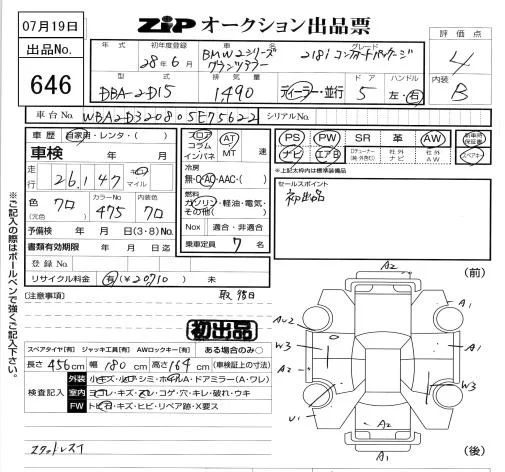 07月19日
ZIP オークション出品票
出品No.
646
評価点
4
内装
B
年式
初年度登録
28年6月
車名
BMW2シリーズ
グランツアラー
グレード
218i コンフォートパッケージ
型式
DBA-2D15
排気量
1,490
ディーラー・並行
ドア
5
ハンドル
左・右
車台No.
WBA2D320805E75622
シリアルNo.
車歴 自家用・レンタ・( )
車検 年 月
走行
26,147
キロ
マイル
色(元色)
クロ
カラーNo
475
内装色
クロ
予備検 年 月 日(3・8)No.
書類有効期限 年 月 日迄
登録No.
リサイクル料金 有(¥20710) 未
フロア
コラム
インパネ
AT
MT
速
冷房
無・C・AC・AAC・( )
燃料
ガソリン・軽油・電気・
その他( )
Nox 適合・非適合
乗車定員 7名
PS PW SR 革 AW
ナビ エアB
社外ナビ
社外AW
新車時保証書
スペアキー
※上記太枠内は標準装備品
セールスポイント
初出品
※ご記入の際はボールペンで強くご記入下さい。
[注意事項]
初出品
スペアタイヤ[有] ジャッキ工具[有] AWロックキー[有] ある場合のみ○
長さ456cm 幅180cm 高さ164cm (車検証上の寸法)
検査記入
外装 小キズ・小凹・シミ・ホイルA・ドアミラー(A・ワレ)
室内 ヨゴレ・キズ・スレ・コゲ・穴・キレ・破れ・ウキ
FW トビ石・キズ・ヒビ・リペア跡・X要ス
スタッドレス
(前)
A2
A1
AU2
W3
A1
A2
W3
U1
A2
A1
(後)